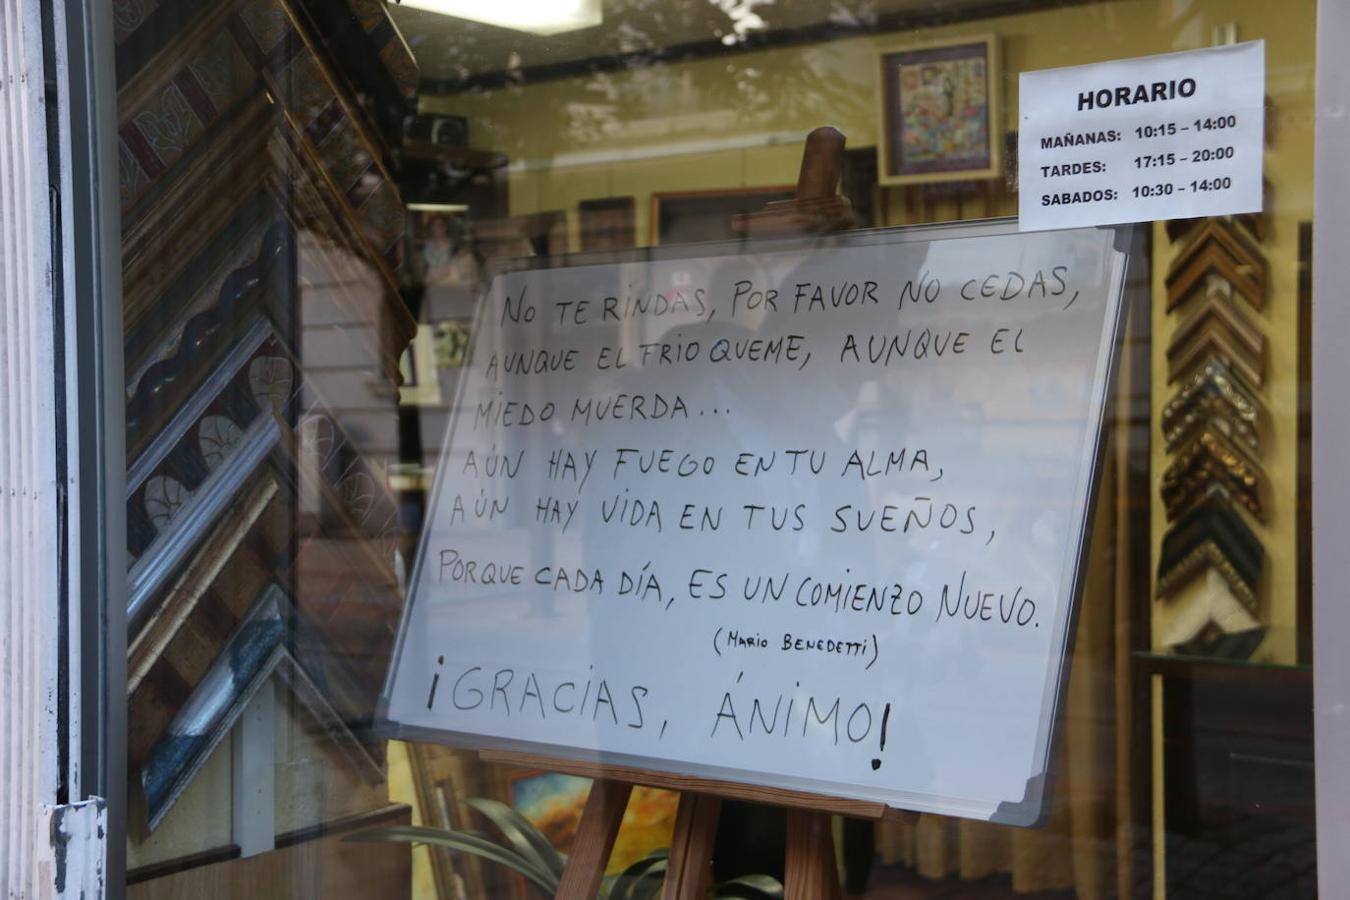 HORARIO
MAÑANAS: 10:15 – 14:00
TARDES: 17:15 – 20:00
SABADOS: 10:30 – 14:00
NO TE RINDAS, POR FAVOR NO CEDAS,
AUNQUE EL FRIO QUEME, AUNQUE EL
MIEDO MUERDA...
AÚN HAY FUEGO EN TU ALMA,
AÚN HAY VIDA EN TUS SUEÑOS,
PORQUE CADA DÍA, ES UN COMIENZO NUEVO.
(MARIO BENEDETTI)
¡GRACIAS, ÁNIMO!